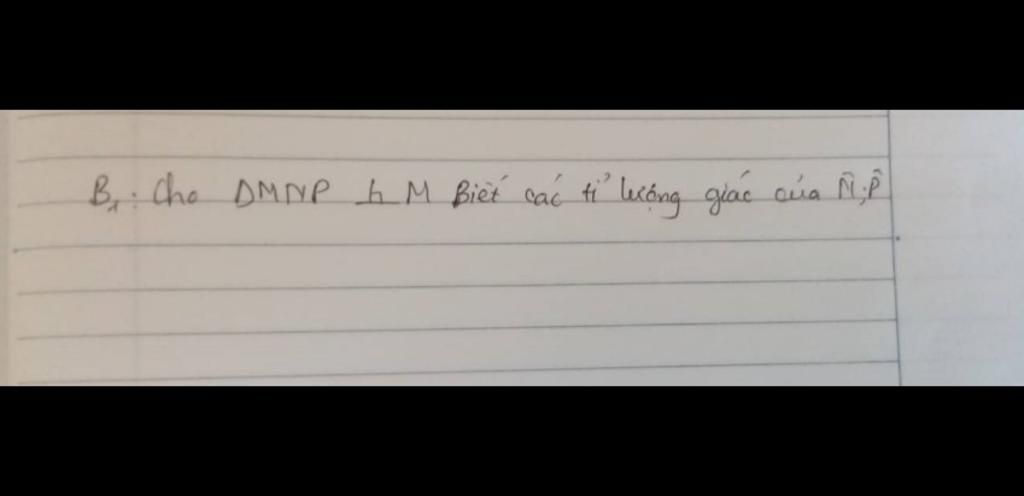 B₁: Cho ΔMNP ⊥ M Biết các tỉ lượng giác của N̂;P̂